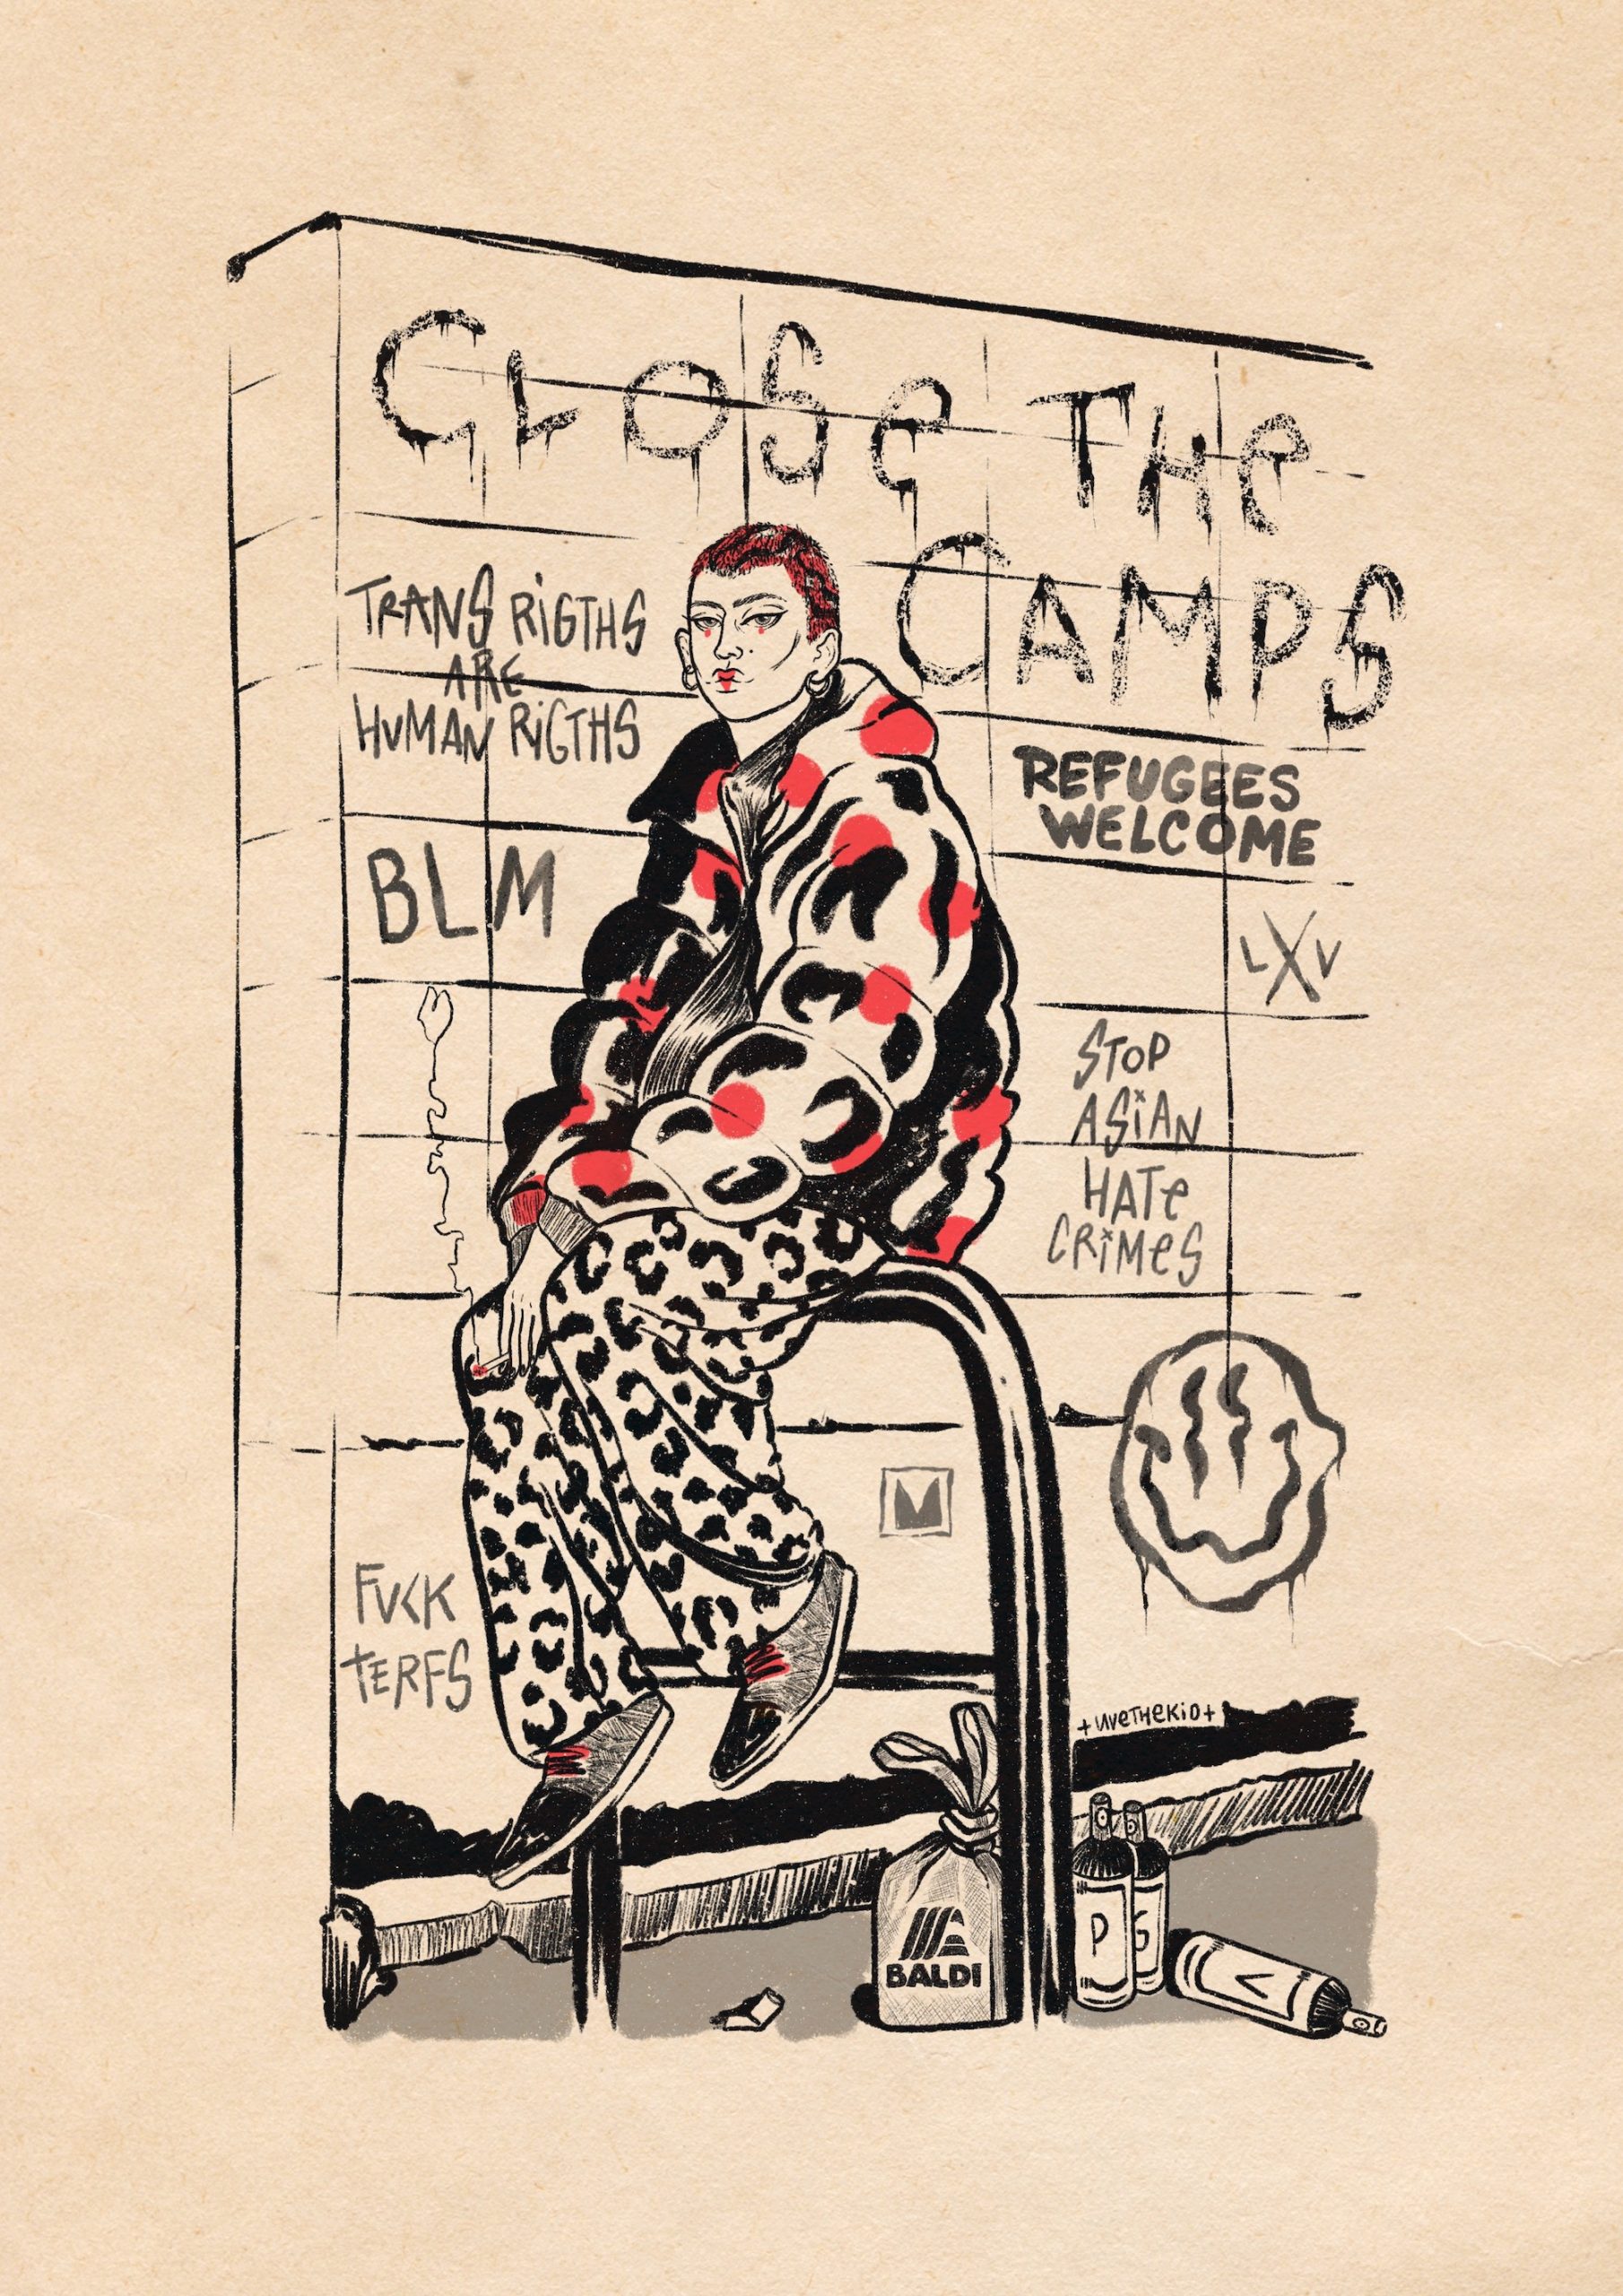 CLOSe THe
CAMPS
TRANS RiGTHS
ARE
HUMAN RiGTHS
REFUGEES
WELCOME
BLM
LXV
STOP
ASiAN
HATe
CRiMeS
M
FUCK
TERFS
+UVeTHeKiD+
BALDI
P
G